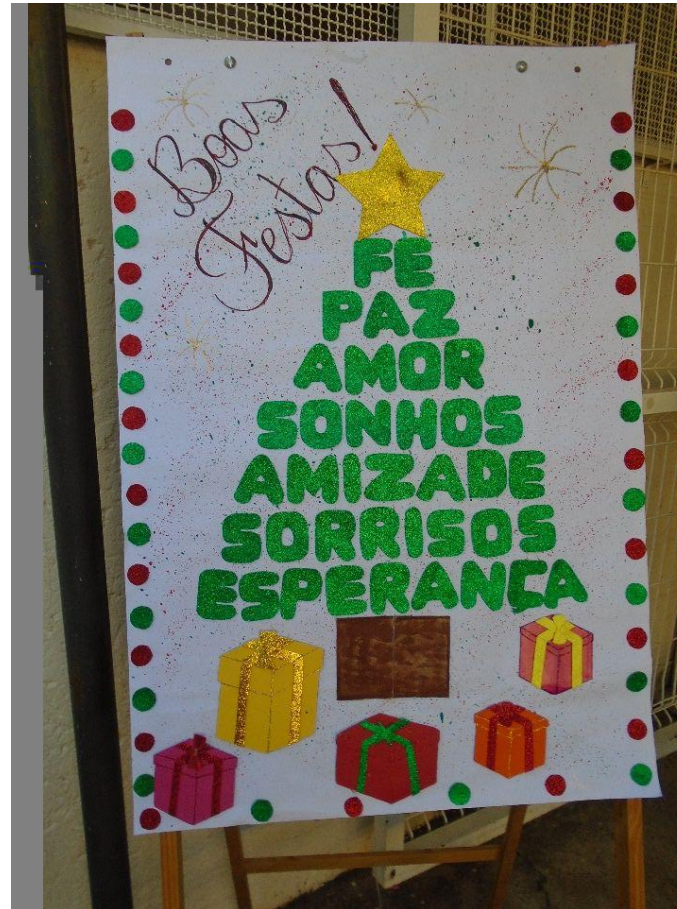 Boas
Festas!
FÉ
PAZ
AMOR
SONHOS
AMIZADE
SORRISOS
ESPERANÇA